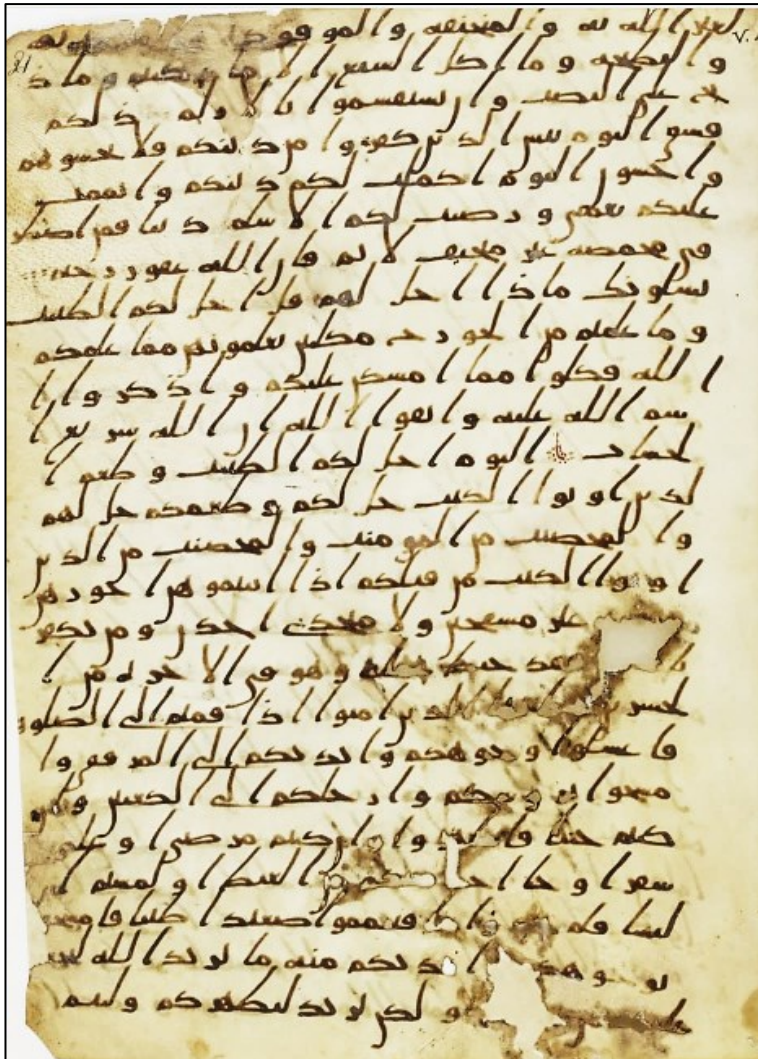 لغير الله به والمنخنقة والموقوذة
والنطيحة وما اكل السبع الا ما ذكيتم وما ذ
بح على النصب وان تستقسموا بالازلم ذلكم
فسق اليوم يئس الذين كفروا من دينكم فلا تخشوهم
واخشون اليوم اكملت لكم دينكم واتممت
عليكم نعمتي ورضيت لكم الاسلم دينا فمن اضطر
في مخمصة غير متجنف لاثم فان الله غفور رحيم
يسلونك ماذا احل لهم قل احل لكم الطيبت
وما علمتم من الجورح مكلبين تعلمونهن مما علمكم
الله فكلوا مما امسكن عليكم واذكروا ا
سم الله عليه واتقوا الله ان الله سريع ا
لحساب اليوم احل لكم الطيبت وطعم ا
لذين اوتوا الكتب حل لكم وطعمكم حل لهم
والمحصنت من المومنت والمحصنت من الذين
اوتوا الكتب من قبلكم اذا اتيتموهن اجورهن
غير مسفحين ولا متخذي اخدن ومن يكفر
فقد حبط عمله وهو في الاخرة من ا
لخسرين الذين امنوا اذا قمتم الى الصلوة
فاغسلوا وجوهكم وايديكم الى المرفق وا
مسحوا بروسكم وارجلكم الى الكعبين وان
كنتم جنبا فاطهروا وان كنتم مرضى او على
سفر او جا احد منكم من الغيط او لمستم ا
لنسا فلم ما فتيمموا صعيدا طيبا فامسحوا
بوجوهكم وايديكم منه ما يريد الله
ولكن يريد ليطهركم وليتم